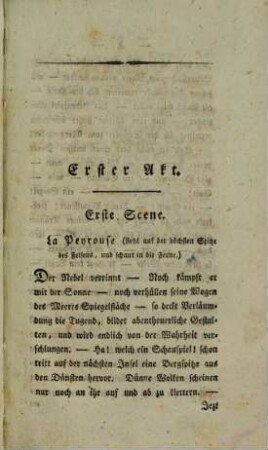 Erster Akt.
Erste Scene.
La Peyrouse (steht auf der höchsten Spitze
des Felsens, und schaut in die Ferne.)
Der Nebel verrinnt — Noch kämpft er
mit der Sonne — noch verhüllen seine Wogen
des Meeres Spiegelfläche — so deckt Verläum-
dung die Tugend, bildet abentheuerliche Gestal-
ten, und wird endlich von der Wahrheit ver-
schlungen. — Ha! welch ein Schauspiel! schon
tritt auf der nächsten Insel eine Bergspitze aus
den Dünsten hervor. Dünne Wolken scheinen
nur noch an ihr auf und ab zu klettern. —
Jezt